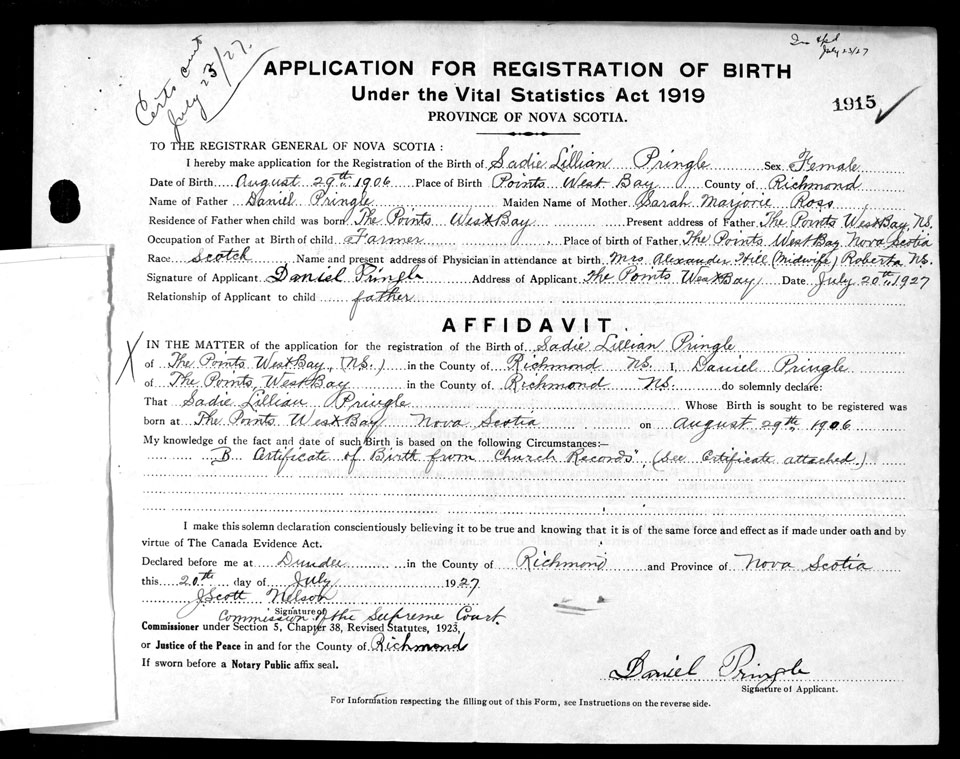 Certs out
July 23/27.
July 23/27
APPLICATION FOR REGISTRATION OF BIRTH
Under the Vital Statistics Act 1919
1915
PROVINCE OF NOVA SCOTIA.
TO THE REGISTRAR GENERAL OF NOVA SCOTIA:
I hereby make application for the Registration of the Birth of Sadie Lillian Pringle Sex Female
Date of Birth August 29th 1906 Place of Birth Points West Bay County of Richmond
Name of Father Daniel Pringle Maiden Name of Mother Sarah Marjorie Ross
Residence of Father when child was born The Points West Bay Present address of Father The Points West Bay, N.S.
Occupation of Father at Birth of child Farmer Place of birth of Father The Points West Bay Nova Scotia
Race Scotch Name and present address of Physician in attendance at birth Mrs Alexander Hill (Midwife) Roberta N.S.
Signature of Applicant Daniel Pringle Address of Applicant The Points West Bay Date July 20th 1927
Relationship of Applicant to child father
AFFIDAVIT.
X IN THE MATTER of the application for the registration of the Birth of Sadie Lillian Pringle
of The Points West Bay, (N.S.) in the County of Richmond N.S. I, Daniel Pringle
of The Points, West Bay in the County of Richmond N.S. do solemnly declare:
That Sadie Lillian Pringle Whose Birth is sought to be registered was
born at The Points West Bay Nova Scotia on August 29th 1906
My knowledge of the fact and date of such Birth is based on the following Circumstances:—
"B Certificate of Birth from Church Records", (See Certificate attached.)
I make this solemn declaration conscientiously believing it to be true and knowing that it is of the same force and effect as if made under oath and by
virtue of The Canada Evidence Act.
Declared before me at Dundee in the County of Richmond and Province of Nova Scotia
this 20th day of July 1927
J. Scott Nelson
Signature of
Commission of the Supreme Court.
Commissioner under Section 5, Chapter 38, Revised Statutes, 1923,
or Justice of the Peace in and for the County of Richmond
If sworn before a Notary Public affix seal.
Daniel Pringle
Signature of Applicant.
For Information respecting the filling out of this Form, see Instructions on the reverse side.